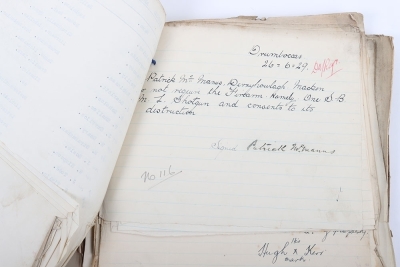 Drumboceas
26=6=29
Patrick Mc Manus, Derryhowlach Macken
not require the Firearm Named, One S.B.
M. L. Shotgun and consents to its
destruction
Signed Patrick McManus
No 116
his
Hugh X Keir
mark